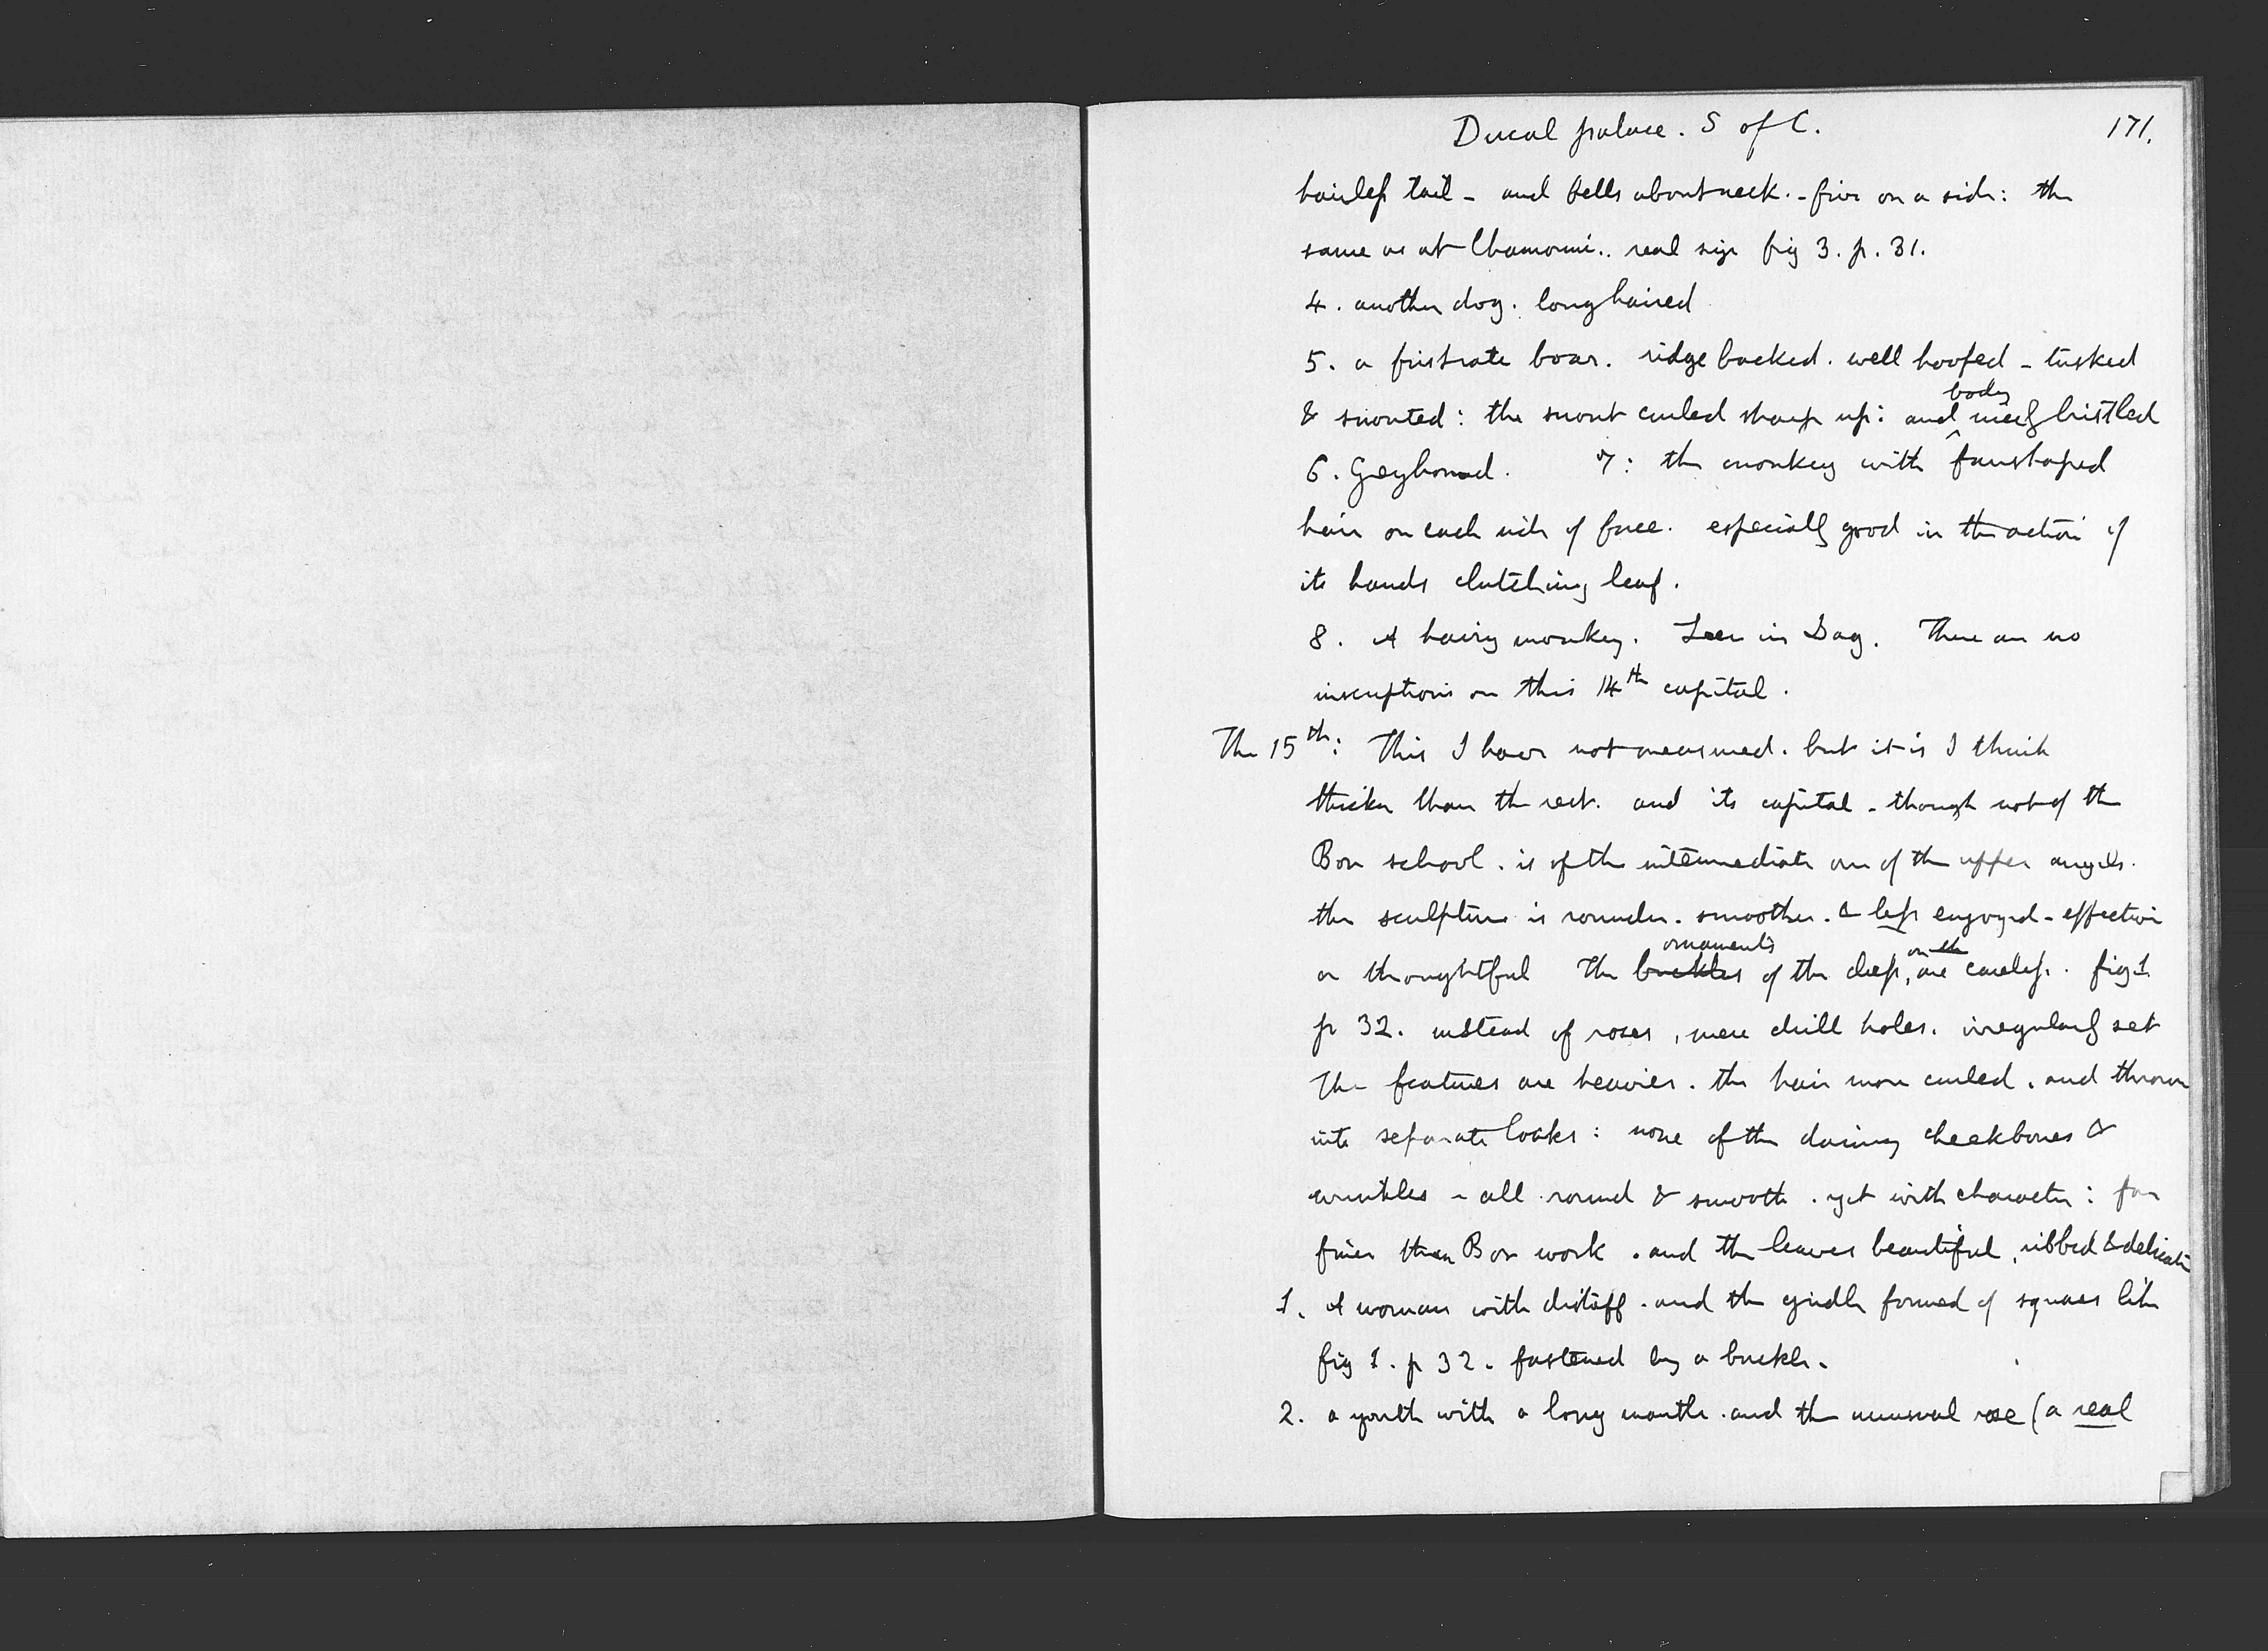 Ducal palace. S of C. 171.
hairless tail - and bells about neck. - five on a side: the
same as at Chamouni.. real size fig 3. p. 31.
4. another dog. long haired
5. a frustrate boar. ridge backed. well hoofed - tusked
& snouted: the snout curled sharp up: and body well bristled
6. Greyhound. 7: the monkey with fanshaped
hair on each side of face. especially good in the action of
its hands clutching leaf.
8. A hairy monkey. Seen in Dag. There are no
inscriptions on this 14th capital.
The 15th: This I have not measured. but it is I think
thicker than the rest. and its capital - though not of the
Bon school. is of the intermediate one of the upper angels.
the sculpture is rounder. smoother. & less engoyed - effective
or thoughtful The buckles ornaments of the dress, on the are careless. fig 1
p 32. instead of roses, mere drill holes. irregularly set
The features are heavier. the hair more curled. and thrown
into separate locks: none of the daring cheekbones &
wrinkles - all round & smooth. yet with character: far
finer than Bon work. and the leaves beautiful, ribbed & delicate
1. A woman with distaff. and the girdle formed of squares like
fig 1. p 32. fastened by a buckle.
2. a youth with a long mantle. and the unusual rose (a real